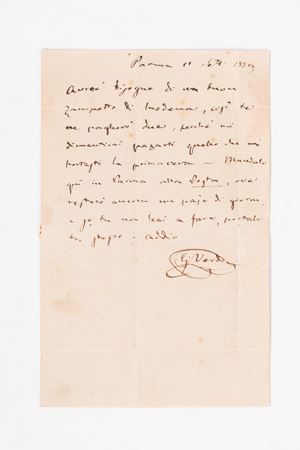 Parma 11 Sett. 1859
Avrei bisogno di un buon
zampetto di Modena, così te
ne pagherò due, perché mi
dimenticai pagarti quello che mi
portasti la primavera — Mandalo
qui in Parma alla Posta, ove
resterò ancora un pajo di giorni,
e se tu non hai a fare, portalo
tu stesso — addio
G. Verdi